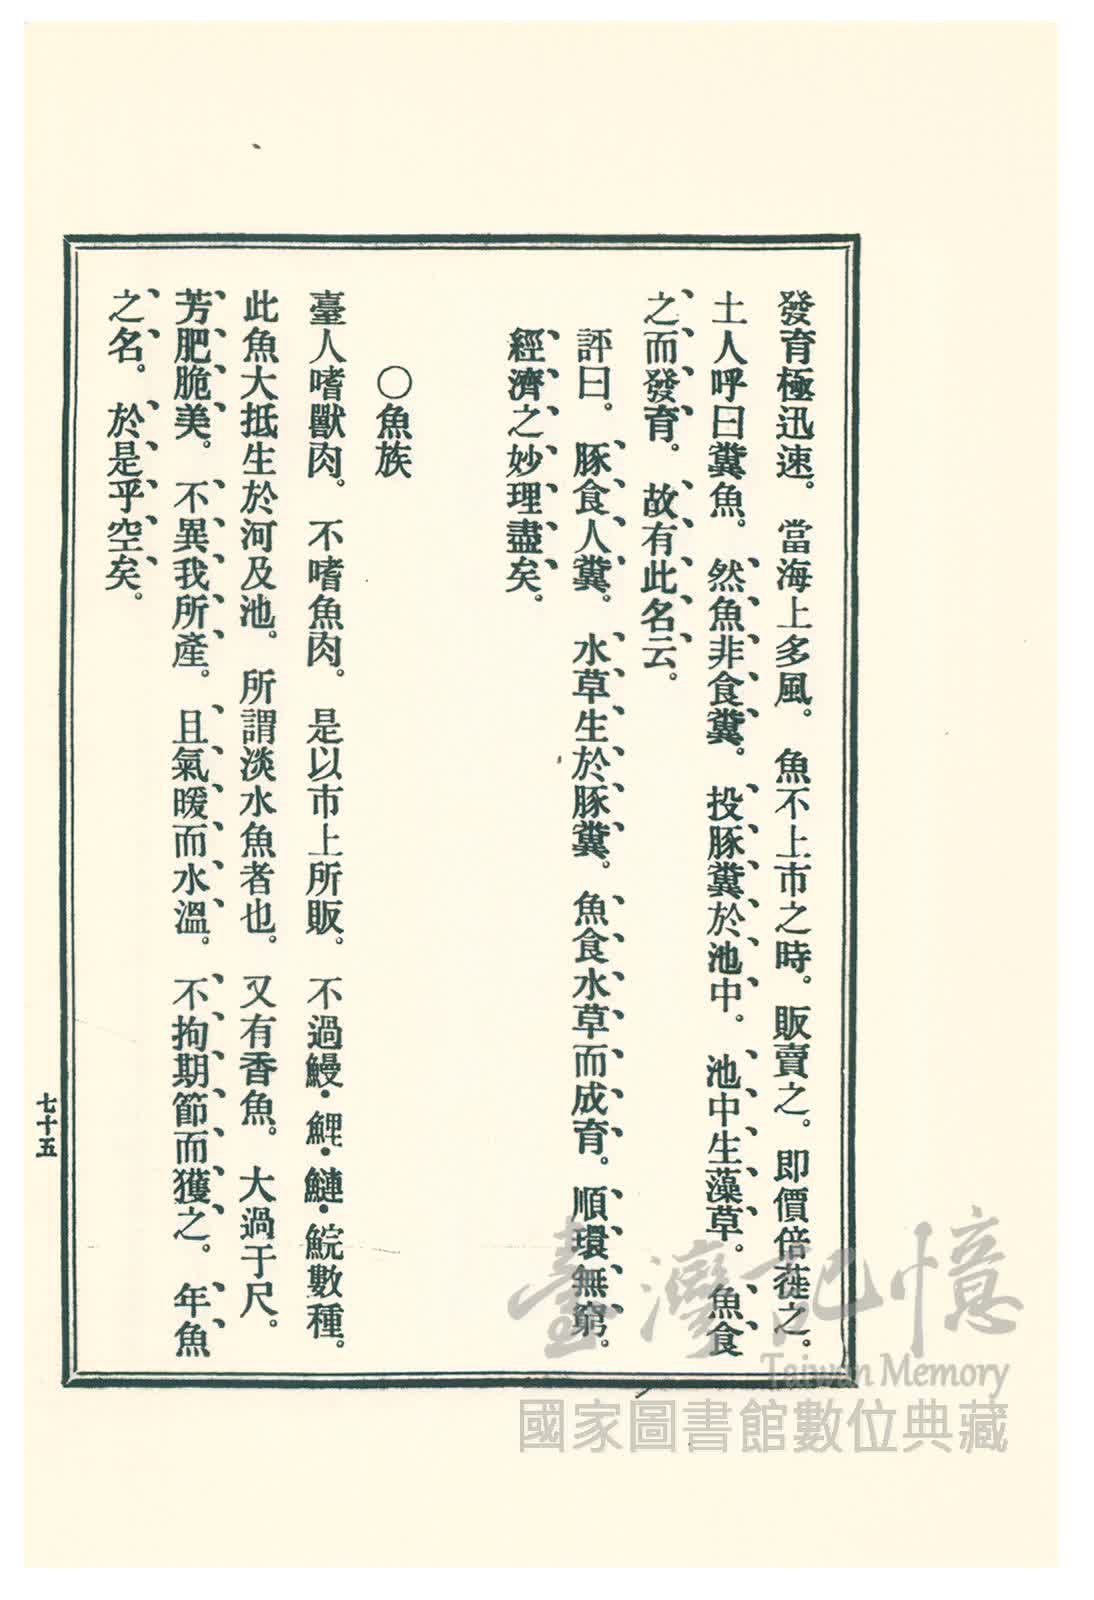 發育極迅速。當海上多風。魚不上市之時。販賣之。即價倍蓰之。
土人呼曰糞魚。然魚非食糞。投豚糞於池中。池中生藻草。魚食
之而發育。故有此名云。
評曰。豚食人糞。水草生於豚糞。魚食水草而成育。順環無窮。
經濟之妙理盡矣。
〇魚族
臺人嗜獸肉。不嗜魚肉。是以市上所販。不過鰻・鯉・鰱・鯇數種。
此魚大抵生於河及池。所謂淡水魚者也。又有香魚。大過于尺。
芳肥脆美。不異我所產。且氣暖而水溫。不拘期節而獲之。年魚
之名。於是乎空矣。
七十五
臺灣記憶
Taiwan Memory
國家圖書館數位典藏